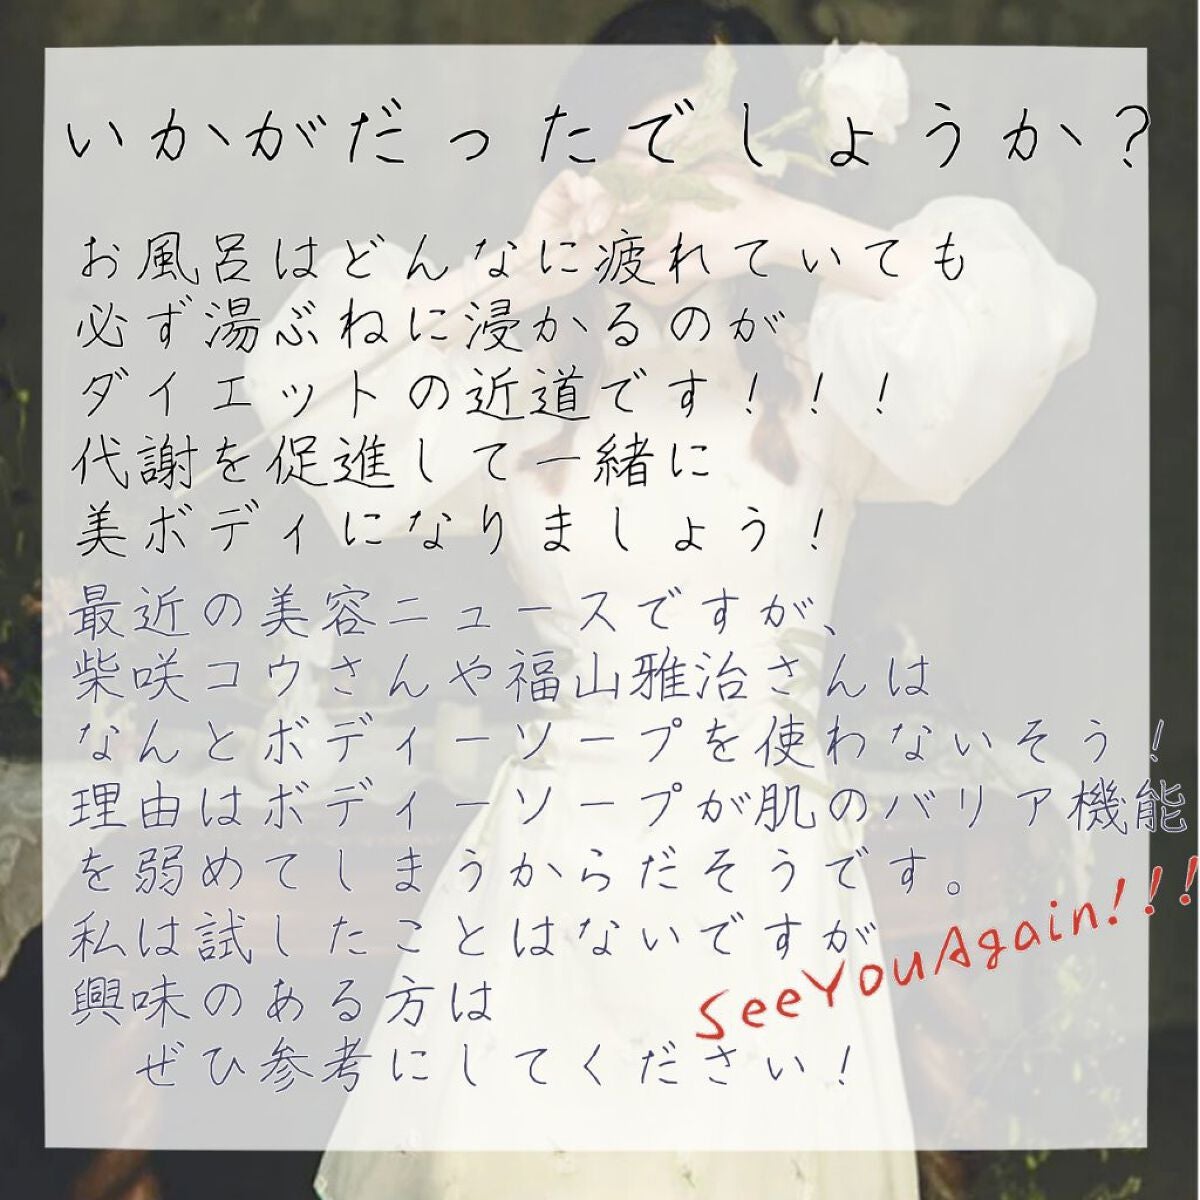 いかがだったでしょうか？
お風呂はどんなに疲れていても
必ず湯ぶねに浸かるのが
ダイエットの近道です！！！
代謝を促進して一緒に
美ボディになりましょう！
最近の美容ニュースですが、
柴咲コウさんや福山雅治さんは
なんとボディーソープを使わないそう！
理由はボディーソープが肌のバリア機能
を弱めてしまうからだそうです。
私は試したことはないですが
興味のある方は
ぜひ参考にしてください！
SeeYouAgain!!!